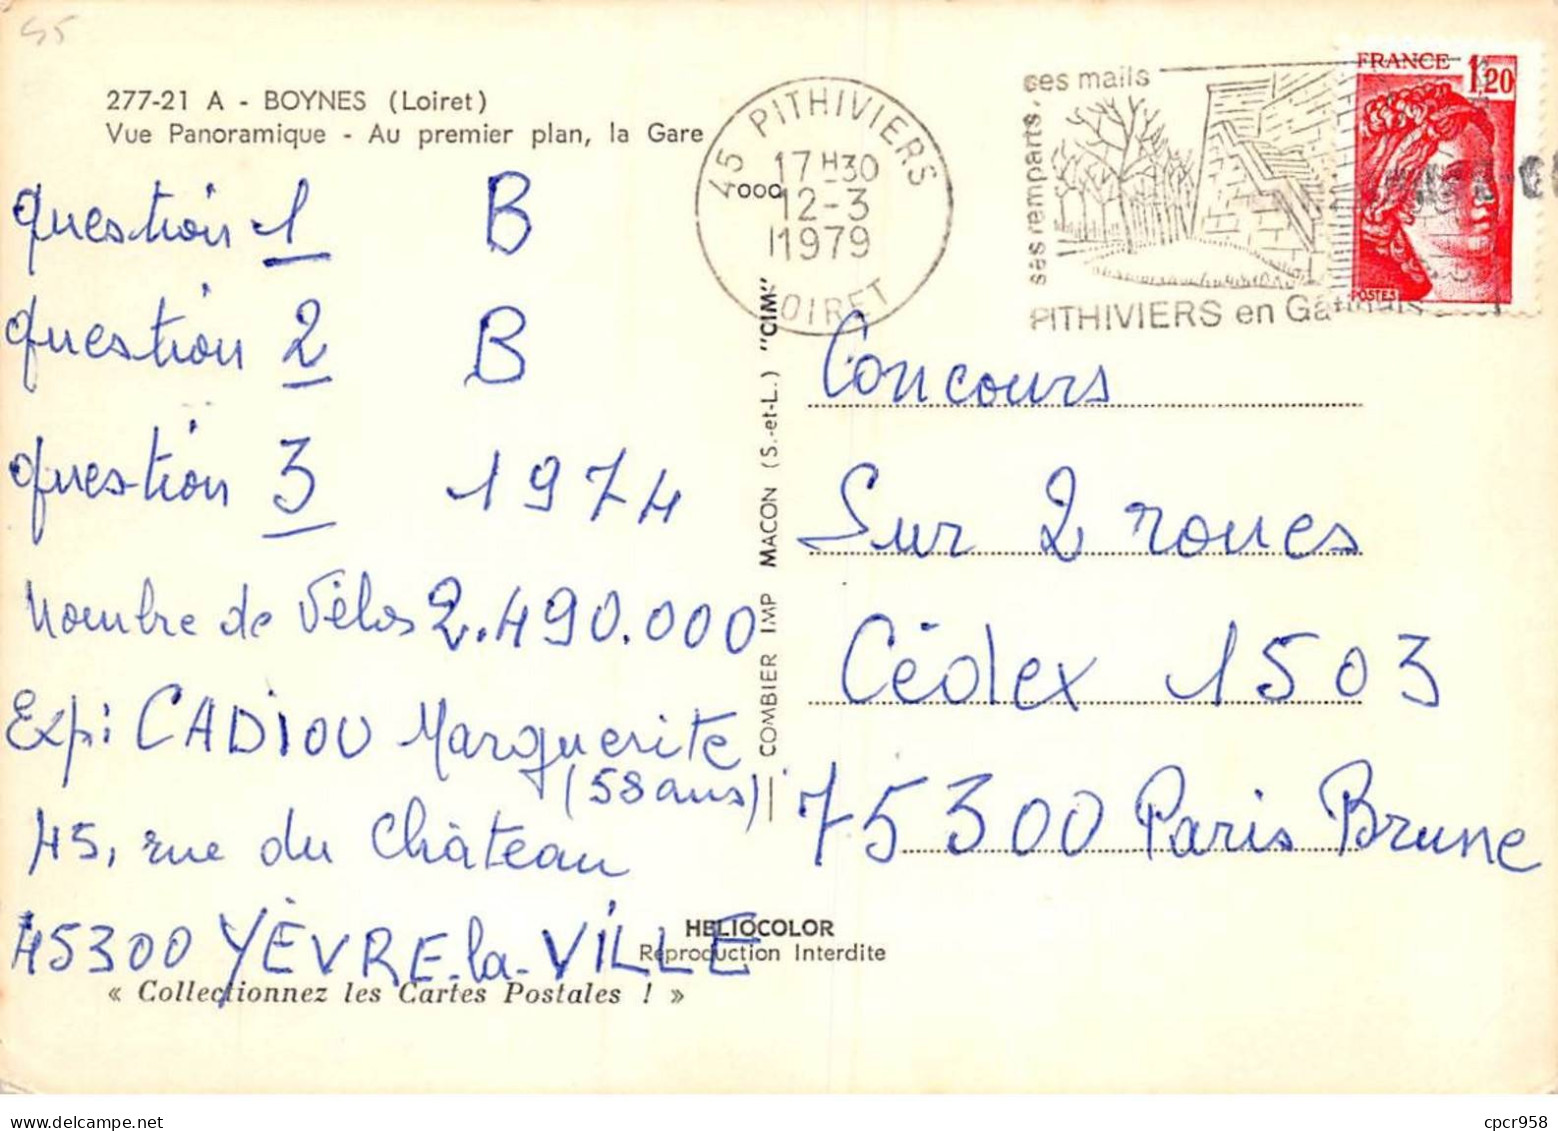 45
277-21 A - BOYNES (Loiret)
Vue Panoramique - Au premier plan, la Gare
question 1 B
question 2 B
question 3 1974
Nombre de Vélos 2.490.000
Exp: CADIOU Marguerite
(58 ans)
45, rue du Château
45300 YÈVRE-la-VILLE
« Collectionnez les Cartes Postales ! »
HELIOCOLOR
Reproduction Interdite
COMBIER IMP MACON (S.-et-L.) "CIM"
45 PITHIVIERS
17 H30
12-3
1979
LOIRET
ses remparts, ses mails
PITHIVIERS en Gâtinais
FRANCE 1,20
POSTES
Concours
Sur 2 roues
Cédex 1503
75300 Paris Brune
cpcr958